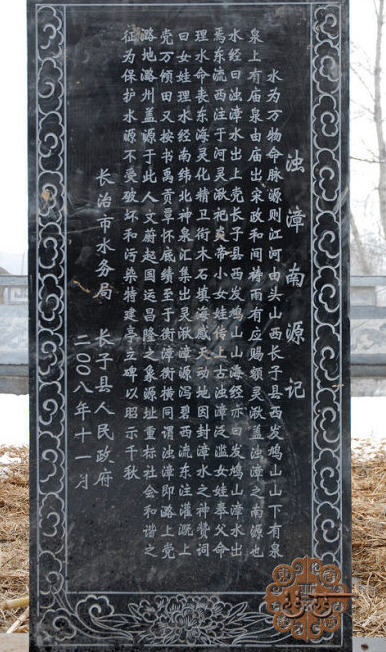 浊漳南源记
水为万物命脉源则江河由头山西长子县西发鸠山山下有泉
泉上有庙泉由庙出宋政和间祷雨有应赐额灵湫盖浊漳之南源也
水经曰浊漳水出上党长子县西发鸠山山海经亦曰发鸠山漳水出
焉东流西注于河灵湫祀炎帝小女娃传上古浊漳泛滥女娃奉父命
理水命丧东海灵化精卫衔木石填海感天动地因封漳水之神赞词
曰女娃理水经南纬北神泉汇集出灵湫漳源泻碧西流东注灌溉上
党万倾田又按书禹贡覃怀底绩至于衡漳衡横同谓浊漳即潞上党
潞地潞州盖源于此人文蔚起国运昌隆之象源址重标社会和谐之
征为保护水源不受破坏和污染特建亭立碑以昭示千秋
长治市水务局 长子县人民政府
二〇〇八年十一月